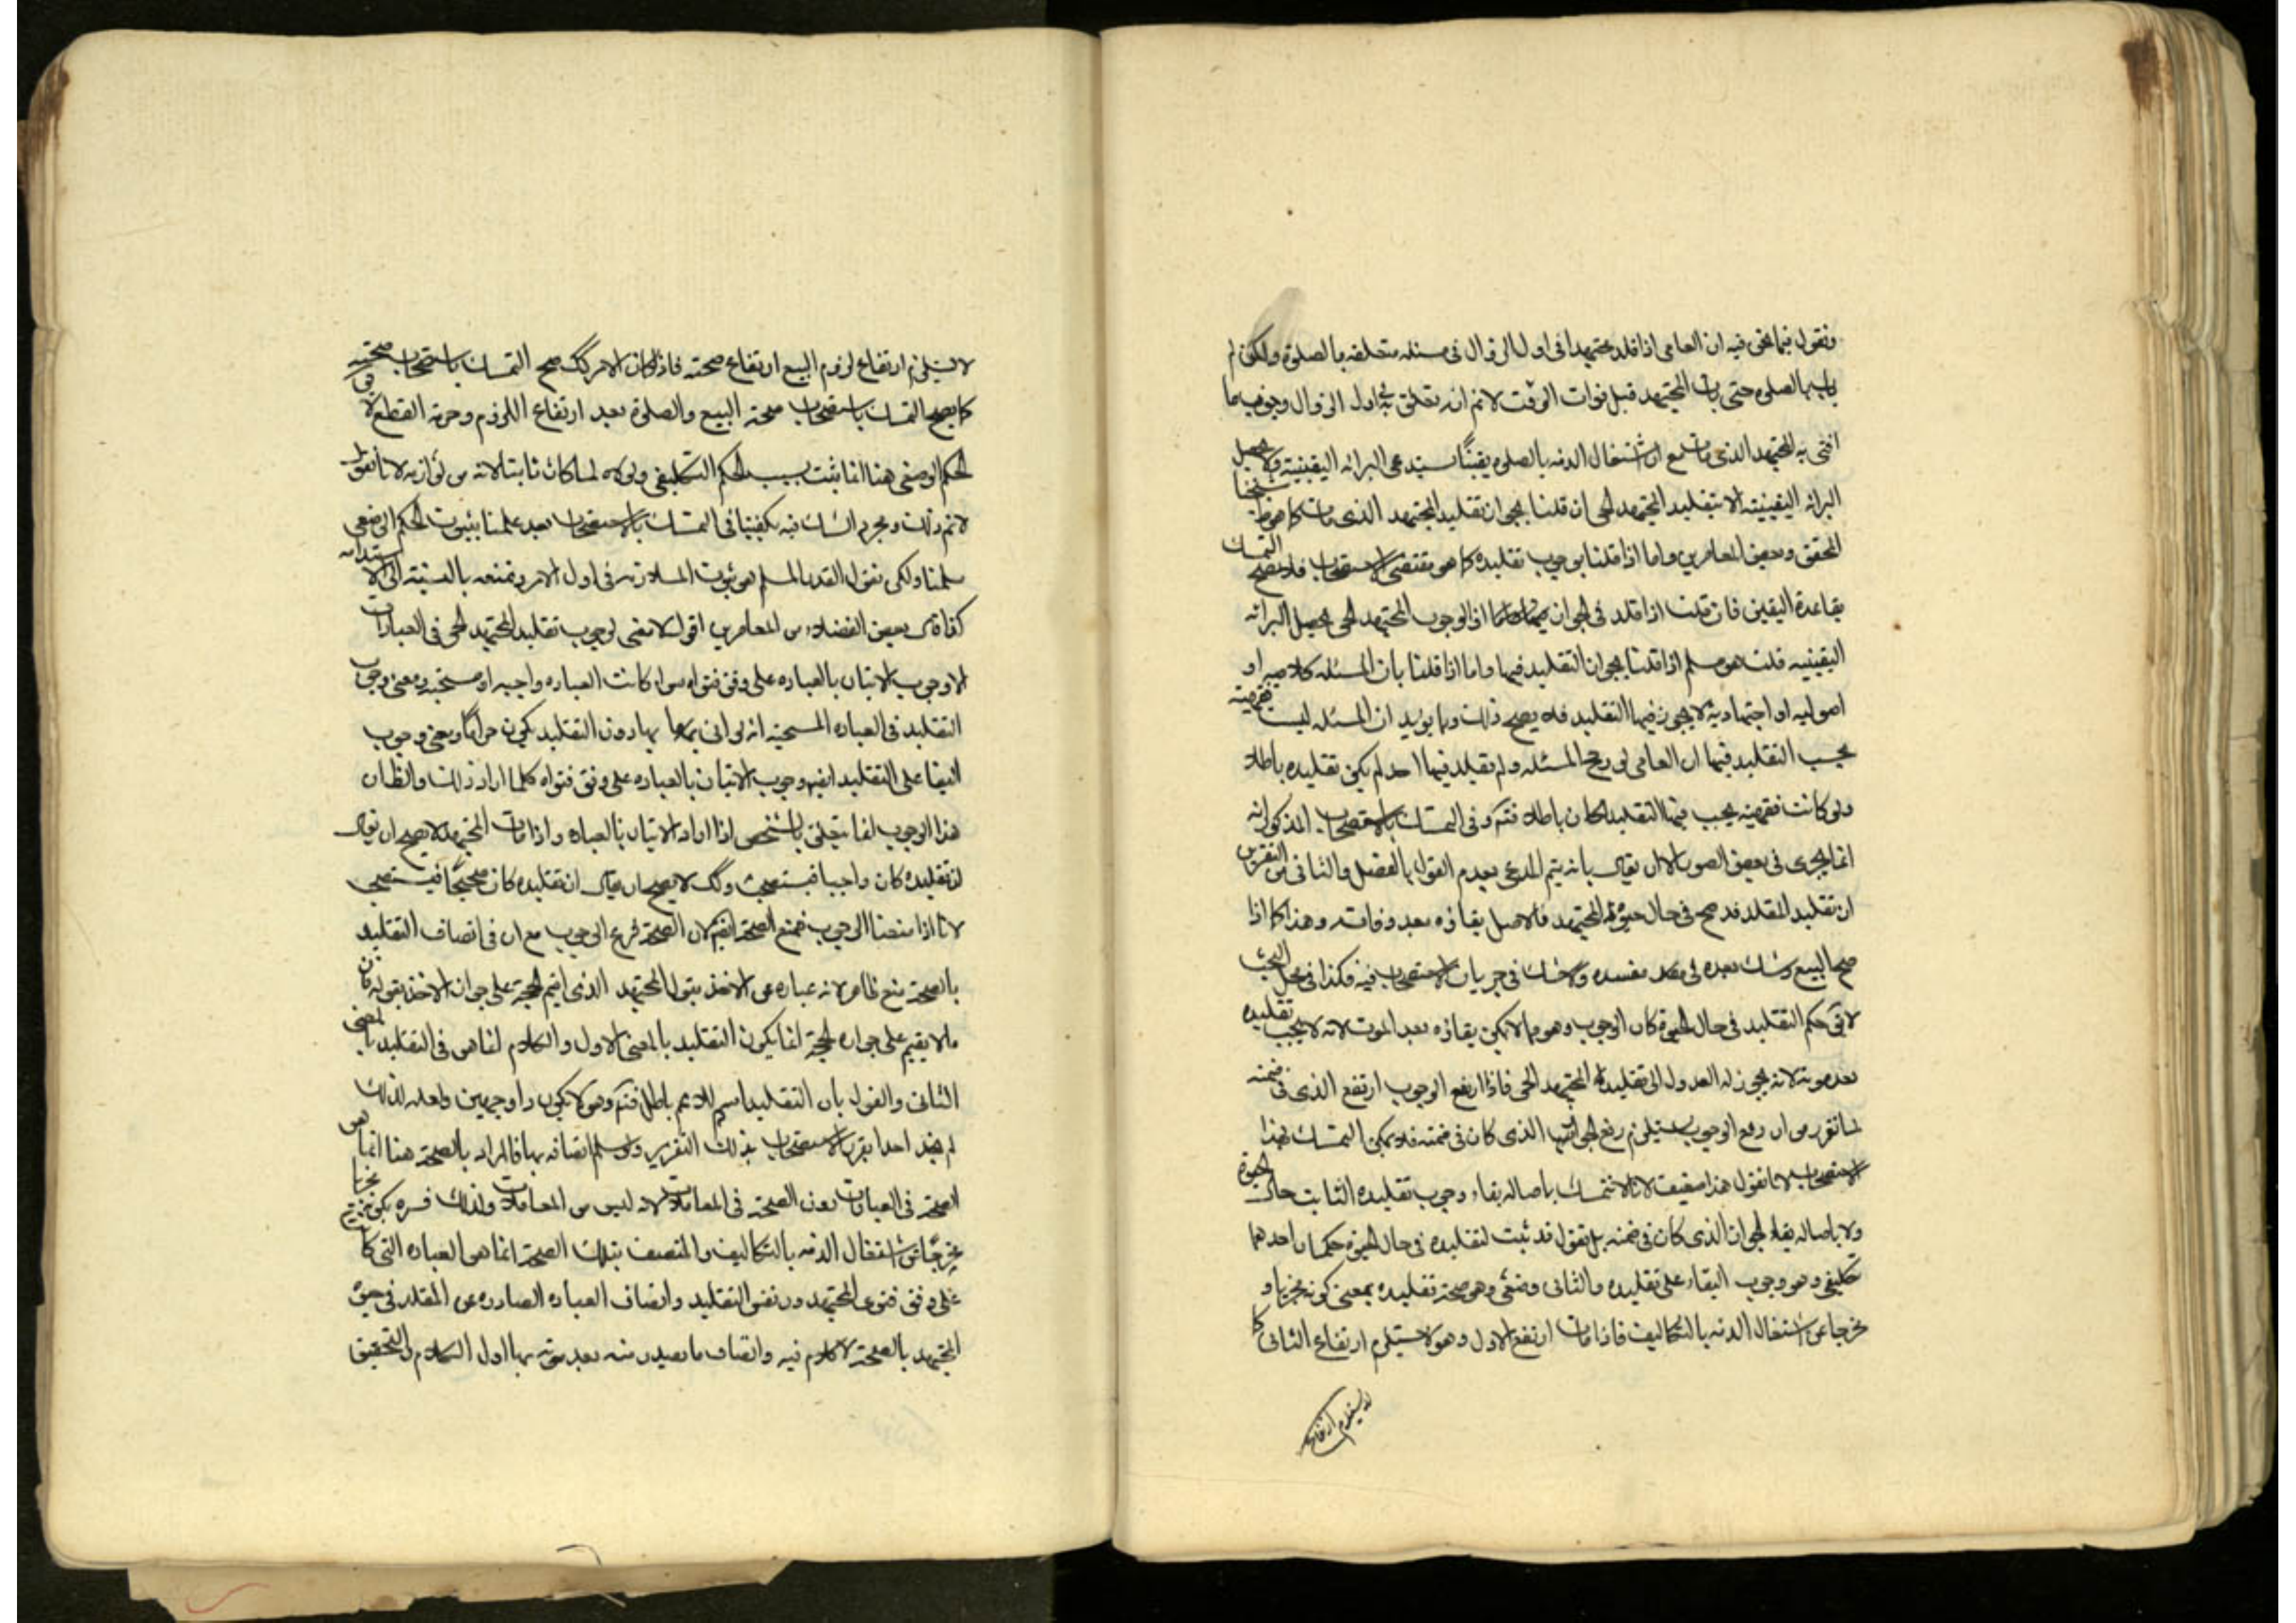 ونقول فيما نحن فيه ان العامى اذا قلد مجتهدا فى اول الزوال فى مسئله متعلقه بالصلوة ولكن لم
يات بالصلوه حتى مات المجتهد قبل فوات الوقت لانم انه تعلق به فى اول الزوال وجوب ما
افتى به المجتهد الذى مات مع ان اشتغال الذمه بالصلوه يقينًا يستدعى البرائه اليقينية ولا يحصل
البرائه اليقينيته الا بتقليد المجتهد الحى ان قلنا بجواز تقليد المجتهد الذى مات كما هو
المحقق وبعض المعاصرين واما اذا قلنا بوجوب تقليده كما هو مقتضى الاستصحاب فلا يصح التمسك
بقاعدة اليقين فان قلت اذا قلد فى الجواز المجتهد الحى يحصل البرائه
اليقينيه قلت هو مسلم اذا قلنا بجواز التقليد فيها واما اذا قلنا بان المسئله كلاميه او
اصوليه او اجتهاديه لا يجوز فيها التقليد فلا يصح ذلك ومما يؤيد ان المسئله ليست فقهيته
يجب التقليد فيها ان العامى لو رجح المسئله ولم يقلد فيها احد لم يكن تقليده باطلا
ولو كانت فقهيته يجب فيها التقليد لكان باطلا فتم وفى التمسك بالاستصحاب المذكور انه
انما يجرى فى بعض الصور الا ان يقال بانه يتم المدعى بعدم القول بالفصل والثانى من التقرير
ان تقليد المقلد قد صح فى حال حيوة المجتهد فالاصل بقاؤه بعد وفاته وهذا كما اذا
صح البيع وشك بعده فى مفسده ولا شك فى جريان الاستصحاب فيه فكذا فى محل البحث
لا يق حكم التقليد فى حال الحيوة كان الوجوب وهو مما لا يمكن بقاؤه بعد الموت لانه لا يجب تقليده
بعد موته لانه يجوز له العدول الى تقليد المجتهد الحى فاذا ارتفع الوجوب ارتفع الذى فى ضمنه
لما تقرر من ان رفع الوجوب يستلزم رفع الجواز الذى كان فى ضمنه فلا يمكن التمسك بهذا
الاستصحاب لانا نقول هذا ضعيف لانا لا نتمسك باصاله بقاء وجوب تقليده الثابت حال الحيوة
ولا باصاله بقاء الجواز الذى كان فى ضمنه بل نقول قد ثبت لتقليده فى حال الحيوة حكمان احدهما
تكليفى وهو وجوب البقاء على تقليده والثانى وضعى وهو صحة تقليده بمعنى كونه مجزيا و
مخرجا عن اشتغال الذمه بالتكاليف فاذا مات ارتفع الاول وهو لا يستلزم ارتفاع الثانى كما
لا يستلزم ارتفاع
لا يستلزم ارتفاع لزوم البيع ارتفاع صحته فاذا كان الامر كك صح التمسك باستصحاب صحته
كما يصح التمسك باستصحاب صحة البيع والصلوة بعد ارتفاع اللزوم وحرمة القطع لا يق
الحكم الوضعى هنا انما يثبت بسبب الحكم التكليفى ولولاه لما كان ثابتا لانه من لوازمه لانا نقول
لانم ذلك ومجرد الشك فيه يكفينا فى التمسك بالاستصحاب بعد علمنا بثبوت الحكم الوضعى
سلمنا ولكن نقول القدر المسلم هو ثبوت الملازمه فى اول الامر ونمنعه بالنسبة الى الاستدامه
كفاة بعض الفضلاء من المعاصرين اقول لا معنى لوجوب تقليد المجتهد الحى فى العبادات
الا وجوب الاتيان بالعباده على وفق فتواه سواء كانت العباده واجبه او مستحبه ومعنى وجوب
التقليد فى العباده المستحبه انه لو اتى بها بدون التقليد يكون حرامًا ومعنى وجوب
البقا على التقليد ايضا وجوب الاتيان بالعباده على وفق فتواه كلما اراد ذلك والظ ان
هذا الوجوب انما يتعلق بالشخص اذا اراد الاتيان بالعباده واذا مات المجتهد لا يصح ان يقال
ان تقليده كان واجبا فيستصحب وكك لا يصح ان يقال ان تقليده كان صحيحًا فيستصحب
لانا اذا منعنا الوجوب فنمنع الصحة ايضا لان الصحة فرع الوجوب مع ان فى اتصاف التقليد
بالصحة منع ظاهر لانه عباره عن الاخذ بقول المجتهد الذى اقيم الحجة على جواز الاخذ بقوله فان
ما لا يقيم على جوازه الحجة انما يكون التقليد بالمعنى الاول والكلام انما هو فى التقليد بالمعنى
الثانى والقول بان التقليد اسم للاعم باطل فتم وهو لا يكون ذا وجهين ولعله لذلك
لم نجد احدا يقرر الاستصحاب بذلك التقرير ولو سلم اتصافه بها فالمراد بالصحة هنا انما هو
الصحة فى العبادات دون الصحة فى المعاملات لانه ليس من المعاملات ولذلك فسره بكونه مجزيا
مخرجًا عن اشتغال الذمه بالتكاليف والمتصف بتلك الصحة انما هى العباده التى كان
على وفق فتوى المجتهد دون نفس التقليد واتصاف العباده الصادره عن المقلد فى حيوة
المجتهد بالصحة لا كلام فيه واتصاف ما يصدر منه بعد موته بها اول الكلام والتحقيق